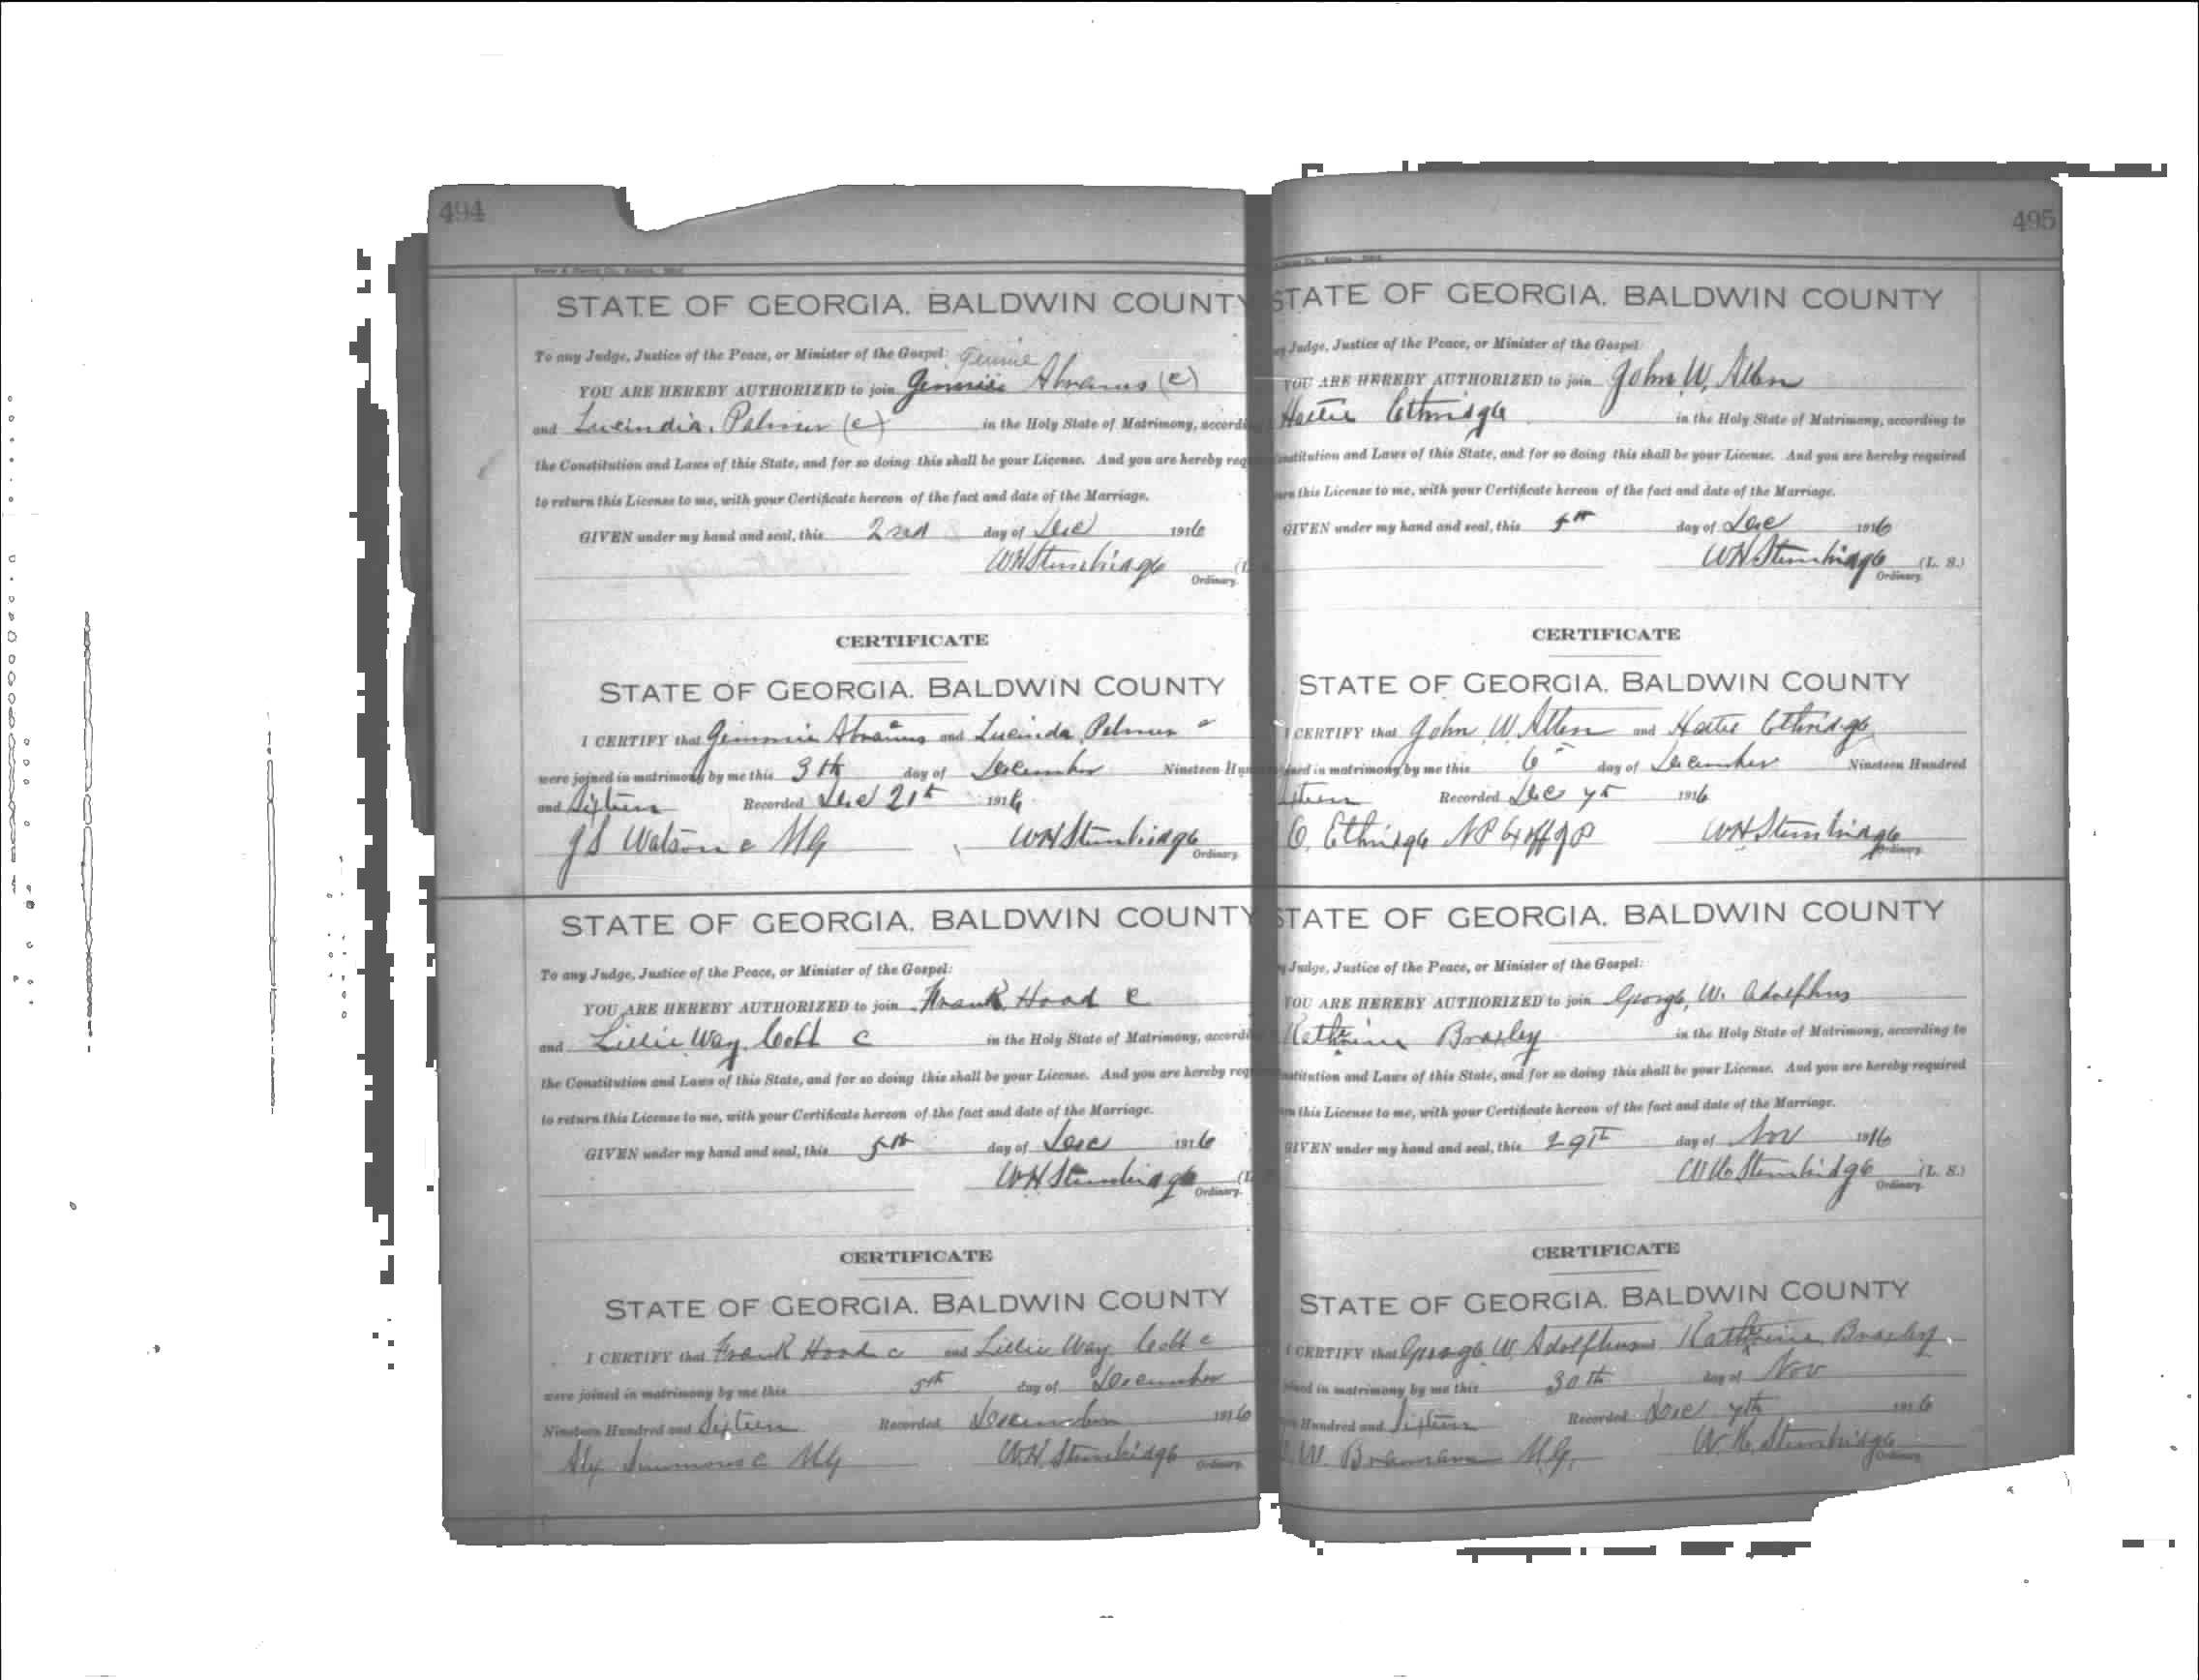 494
STATE OF GEORGIA. BALDWIN COUNTY
To any Judge, Justice of the Peace, or Minister of the Gospel:
YOU ARE HEREBY AUTHORIZED to join Gimmie Abrams (c)
and Lucindia Palmer (c) in the Holy State of Matrimony, accordi
the Constitution and Laws of this State, and for so doing this shall be your License. And you are hereby req
to return this License to me, with your Certificate hereon of the fact and date of the Marriage.
GIVEN under my hand and seal, this 2nd day of Dec 1916
WH Stembridge
Ordinary.
CERTIFICATE
STATE OF GEORGIA. BALDWIN COUNTY
I CERTIFY that Gimmie Abrams c and Lucinda Palmer c
were joined in matrimony by me this 3th day of December Nineteen Hun
and Sixteen Recorded Dec 21st 1916
J S Watson c MG WH Stembridge
Ordinary.
STATE OF GEORGIA. BALDWIN COUNTY
To any Judge, Justice of the Peace, or Minister of the Gospel:
YOU ARE HEREBY AUTHORIZED to join Frank Hood c
and Lillie Way Cobb c in the Holy State of Matrimony, accordi
the Constitution and Laws of this State, and for so doing this shall be your License. And you are hereby req
to return this License to me, with your Certificate hereon of the fact and date of the Marriage.
GIVEN under my hand and seal, this 5th day of Dec 1916
WH Stembridge
Ordinary.
CERTIFICATE
STATE OF GEORGIA. BALDWIN COUNTY
I CERTIFY that Frank Hood c and Lillie Way Cobb c
were joined in matrimony by me this 5th day of December
Nineteen Hundred and Sixteen Recorded December 1916
Simmons c MG W.H. Stembridge Ordinary.
495
STATE OF GEORGIA. BALDWIN COUNTY
Judge, Justice of the Peace, or Minister of the Gospel:
YOU ARE HEREBY AUTHORIZED to join John W. Allen
Hattie Ethridge in the Holy State of Matrimony, according to
nstitution and Laws of this State, and for so doing this shall be your License. And you are hereby required
urn this License to me, with your Certificate hereon of the fact and date of the Marriage.
GIVEN under my hand and seal, this 5th day of Dec 1916
WH Stembridge (L. S.)
Ordinary.
CERTIFICATE
STATE OF GEORGIA. BALDWIN COUNTY
I CERTIFY that John W. Allen and Hattie Ethridge
ined in matrimony by me this 6 day of December Nineteen Hundred
ixteen Recorded Dec 7th 1916
Ethridge NP Ex off JP WH Stembridge
Ordinary.
STATE OF GEORGIA. BALDWIN COUNTY
Judge, Justice of the Peace, or Minister of the Gospel:
YOU ARE HEREBY AUTHORIZED to join George, W. Adolphus
Kathrine Braxley in the Holy State of Matrimony, according to
nstitution and Laws of this State, and for so doing this shall be your License. And you are hereby required
rn this License to me, with your Certificate hereon of the fact and date of the Marriage.
GIVEN under my hand and seal, this 29th day of Nov 1916
W H Stembridge (L. S.)
Ordinary.
CERTIFICATE
STATE OF GEORGIA. BALDWIN COUNTY
I CERTIFY that George W. Adolfhus Kathrine Braxley
ined in matrimony by me this 30th day of Nov
Hundred and Sixteen Recorded Dec 7th 1916
W. M.G. W. H. Stembridge
Ordinary.